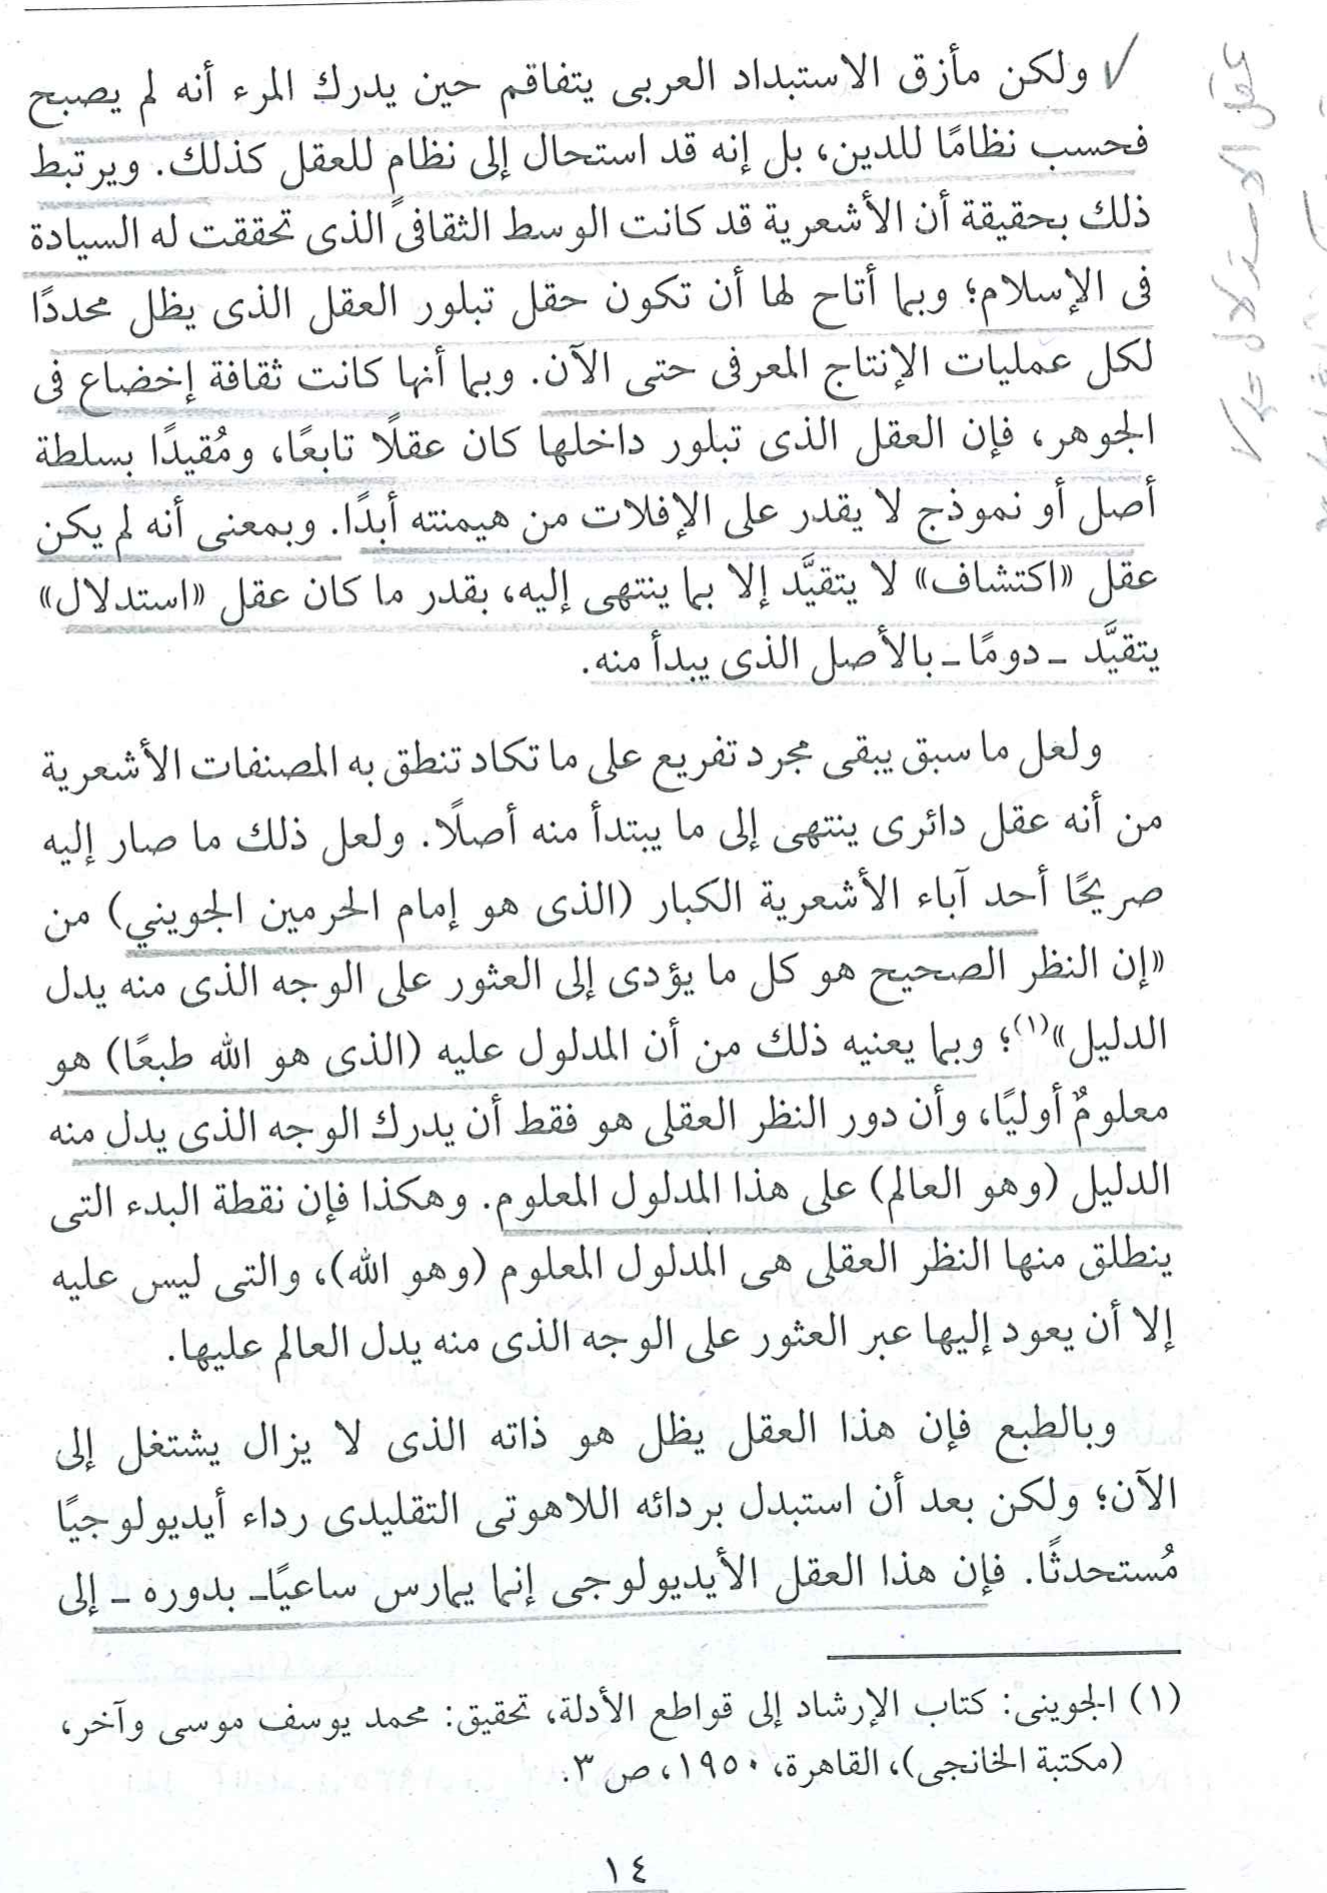 ولكن مأزق الاستبداد العربى يتفاقم حين يدرك المرء أنه لم يصبح
فحسب نظامًا للدين، بل إنه قد استحال إلى نظامٍ للعقل كذلك. ويرتبط
ذلك بحقيقة أن الأشعرية قد كانت الوسط الثقافى الذى تحققت له السيادة
فى الإسلام؛ وبما أتاح لها أن تكون حقل تبلور العقل الذى يظل محددًا
لكل عمليات الإنتاج المعرفى حتى الآن. وبما أنها كانت ثقافة إخضاع فى
الجوهر، فإن العقل الذى تبلور داخلها كان عقلًا تابعًا، ومُقيدًا بسلطة
أصل أو نموذج لا يقدر على الإفلات من هيمنته أبدًا. وبمعنى أنه لم يكن
عقل «اكتشاف» لا يتقيَّد إلا بما ينتهى إليه، بقدر ما كان عقل «استدلال»
يتقيَّد ـ دومًا ـ بالأصل الذى يبدأ منه.
ولعل ما سبق يبقى مجرد تفريع على ما تكاد تنطق به المصنفات الأشعرية
من أنه عقل دائرى ينتهى إلى ما يبتدأ منه أصلًا. ولعل ذلك ما صار إليه
صريحًا أحد آباء الأشعرية الكبار (الذى هو إمام الحرمين الجويني) من
«إن النظر الصحيح هو كل ما يؤدى إلى العثور على الوجه الذى منه يدل
الدليل»(١)؛ وبما يعنيه ذلك من أن المدلول عليه (الذى هو الله طبعًا) هو
معلومٌ أوليًا، وأن دور النظر العقلى هو فقط أن يدرك الوجه الذى يدل منه
الدليل (وهو العالم) على هذا المدلول المعلوم. وهكذا فإن نقطة البدء التى
ينطلق منها النظر العقلى هى المدلول المعلوم (وهو الله)، والتى ليس عليه
إلا أن يعود إليها عبر العثور على الوجه الذى منه يدل العالم عليها.
وبالطبع فإن هذا العقل يظل هو ذاته الذى لا يزال يشتغل إلى
الآن؛ ولكن بعد أن استبدل بردائه اللاهوتى التقليدى رداء أيديولوجيًا
مُستحدثًا. فإن هذا العقل الأيديولوجى إنما يمارس ساعيًا ـ بدوره ـ إلى
(١) الجوينى: كتاب الإرشاد إلى قواطع الأدلة، تحقيق: محمد يوسف موسى وآخر،
(مكتبة الخانجى)، القاهرة، ١٩٥٠، ص ٣.
١٤
عقل الاستدلال